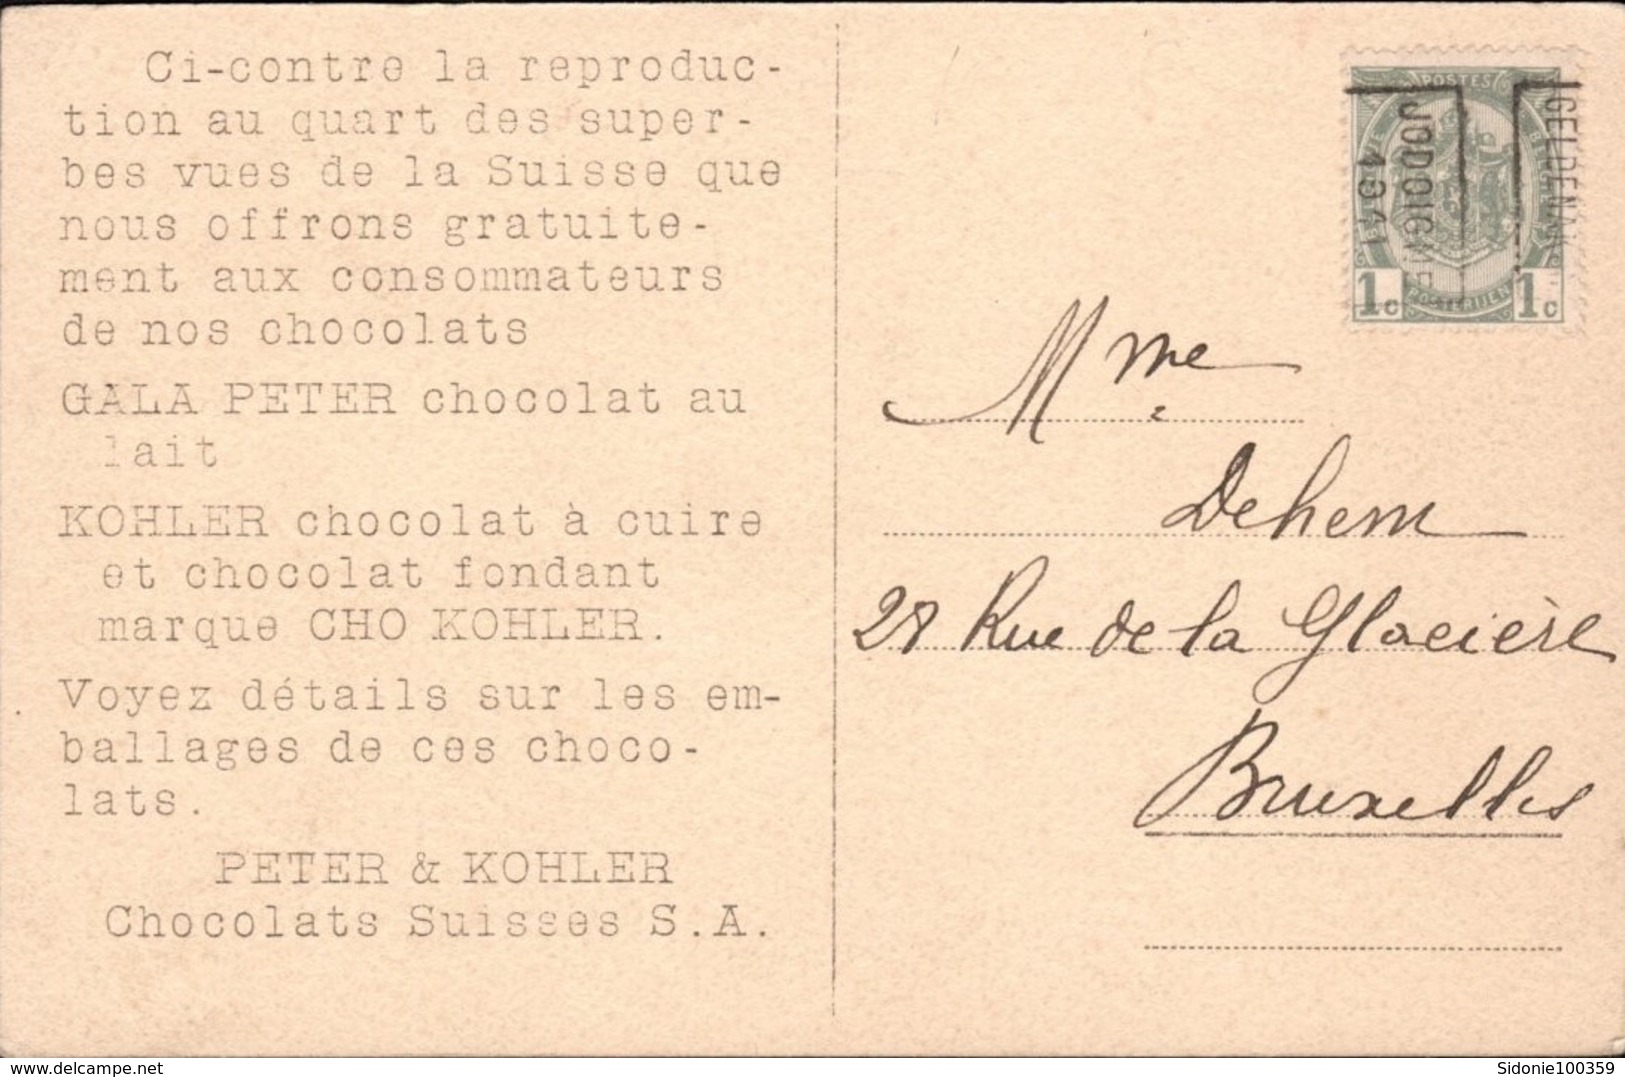 Ci-contre la reproduc-
tion au quart des super-
bes vues de la Suisse que
nous offrons gratuite-
ment aux consommateurs
de nos chocolats
GALA PETER chocolat au
lait
KOHLER chocolat à cuire
et chocolat fondant
marque CHO KOHLER.
Voyez détails sur les em-
ballages de ces choco-
lats.
PETER & KOHLER
Chocolats Suisses S.A.
POSTES
1c
1c
JODOIGNE
Mme
Dehem
Rue de la Glacière
Bruxelles
delcampe.net
Sidonie100359